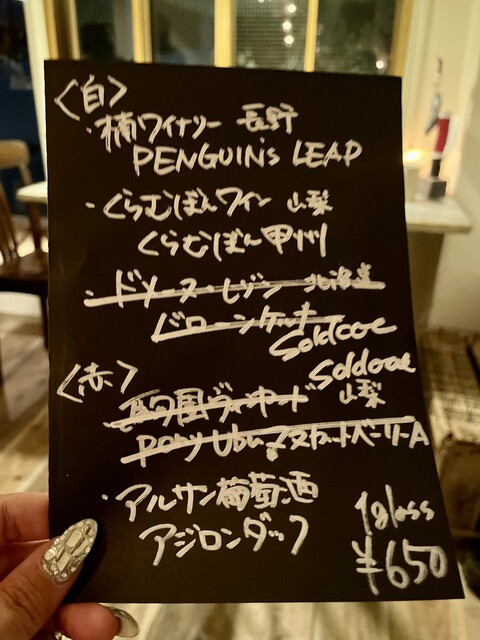 〈白〉
・楠ワイナリー 長野
PENGUIN's LEAP
・くらむぼんワイン 山梨
くらむぼん甲州
・ドメーヌ・レゾン 北海道
バローンケルナー
Soldout
〈赤〉
Soldout
ヴィンヤード 山梨
マスカットベーリーA
・アルサン葡萄酒
アジロンダック
1glass
¥650